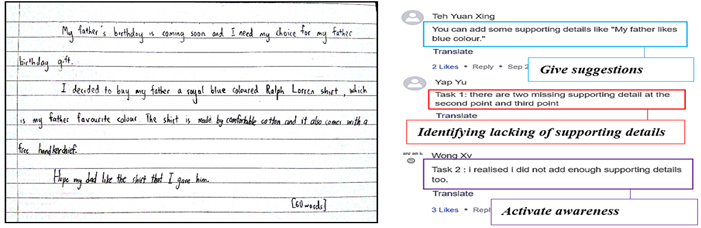 My father's birthday is coming soon and I need my choice for my father
birthday gift.
I decided to buy my father a royal blue coloured Ralph Loren shirt, which
is my father favourite colour. The shirt is made by comfortable cotton and it also comes with a
free handkerchief.
Hope my dad like the shirt that I gave him.
[60 words]
Teh Yuan Xing
You can add some supporting details like "My father likes
blue colour."
Translate
2 Likes • Reply • Sep 2
Give suggestions
Yap Yu
Task 1: there are two missing supporting detail at the
second point and third point
Translate
Identifying lacking of supporting details
Wong Xy
Task 2 : i realised i did not add enough supporting details
too.
Translate
3 Likes • Repl
Activate awareness